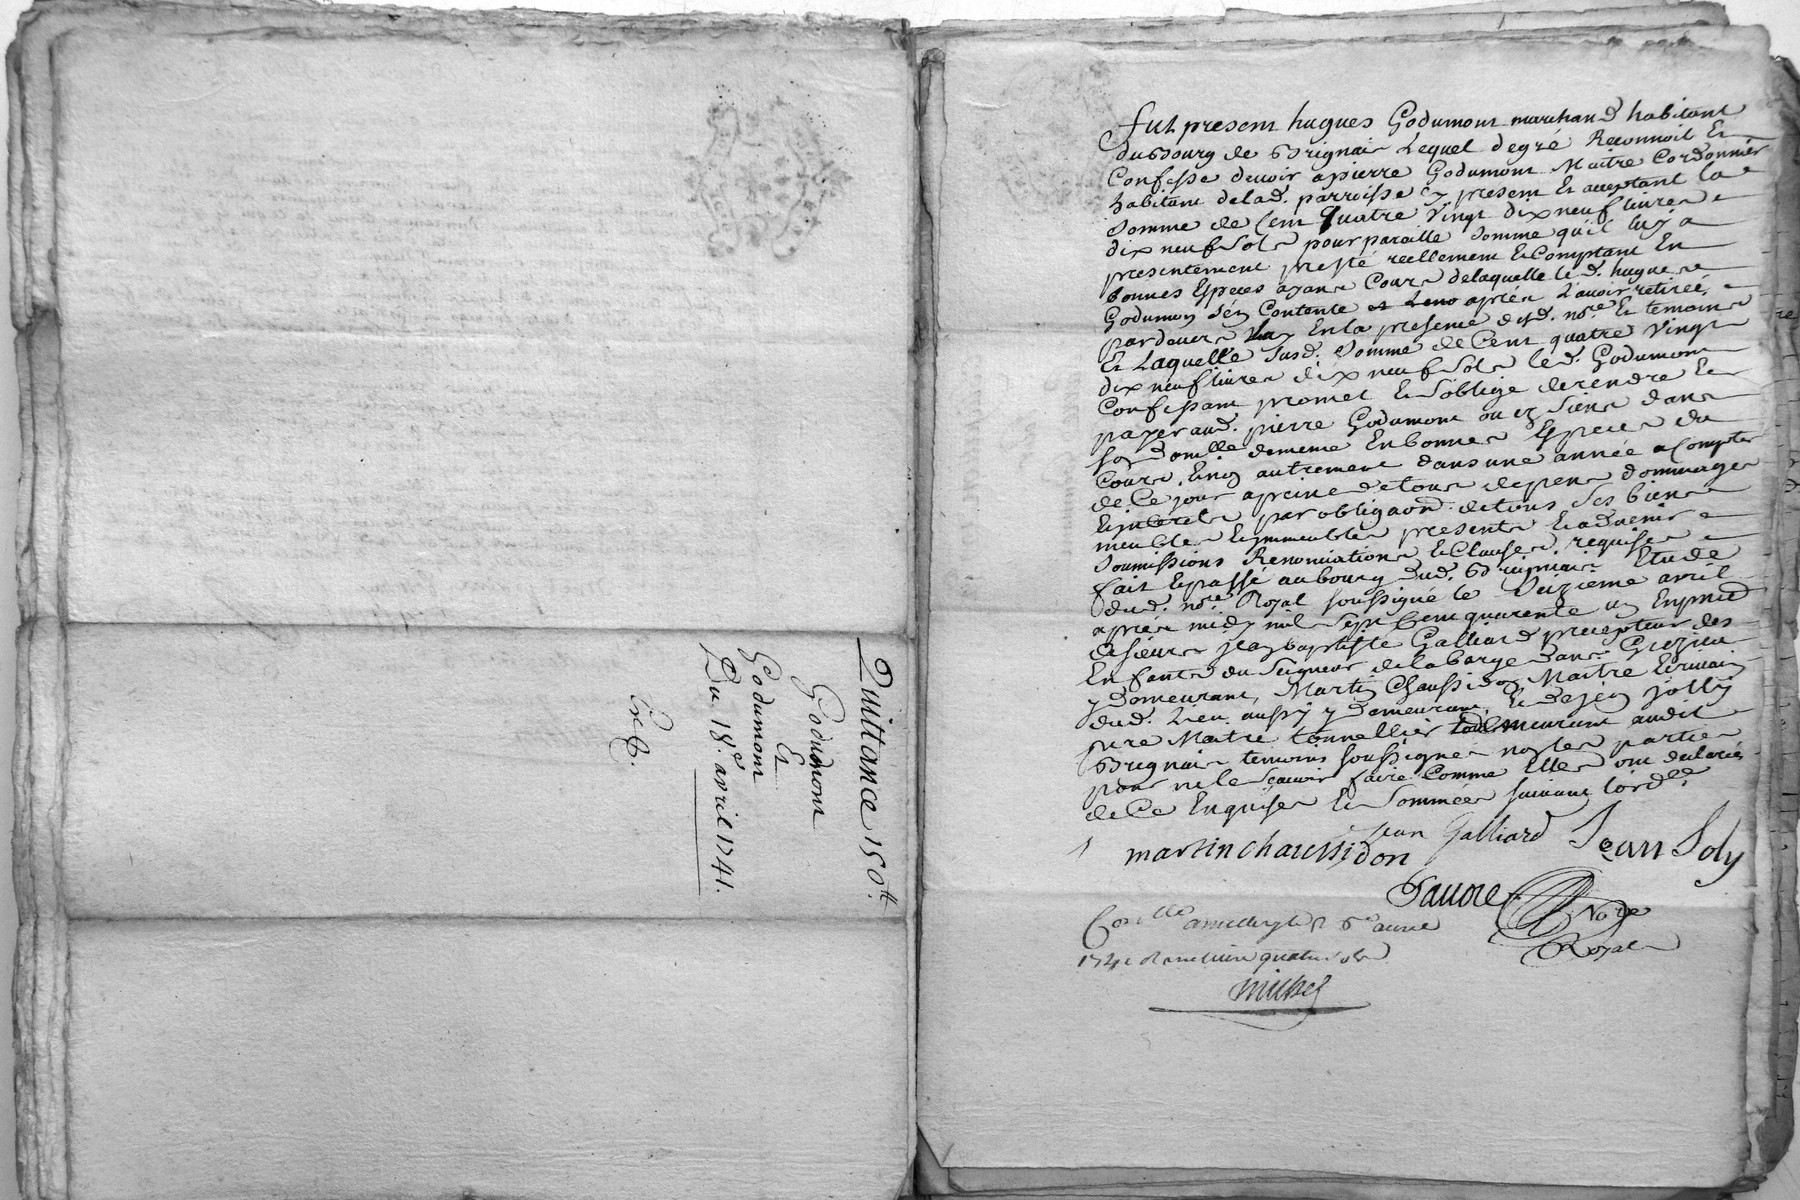 Quittance 150 tt
Godumont
Et
Godumont
Du 18e avril 1741.
Exp.
fut present hugues Godumont marchand habitant
du Bourg de Brignais Lequel degré Reconnoit Et
Confesse devoir a pierre Godumont Maitre Cordonnier
habitant delad. parroisse cy present Et acceptant la
Somme de Cent quatre Vingt dix neuf livres
dix neuf Sols pour pareille Somme qu'il luy a
presentement presté reellement Et Comptant En
bonnes Especes ayans Cours delaquelle led. hugues
Godumon s'en Contente aprés L'avoir retirée
pardevers luy En la presence dud. nore Et temoins
Et Laquelle Susd. Somme de Cent quatre Vingt
dix neuf livres dix neuf Sols led. Godumont
Confessant promet Et S'oblige de rendre Et
payer aud. pierre Godumont ou es Siens dans
son domille demême En bonnes Especes du
Cours, autrement dans une année a Compter
de Ce jour a peine de tous depens dommages
Et interets par obligaon de tous Ses biens
meubles Et immeubles presents Et advenir
Soumissions Renonciations Et Clauses requises
fait Et passé au bourg dud. Brignais Etude
dud. nore Royal soussigné le avril
aprés midy mil Sept Cent quarente un En pnce
de sieurs jean baptiste Galliard precepteur des
Enfants du Seigneur de la barge dans Grezieu
y Demeurant, Martin Chaussidon Maitre Ecrivain
dud. Lieu aussy y Demeurant, Et de jean jolly
pere Maitre tonnellier demeurant audit
Brignais temoins soussignés non les parties
pour ne le Sçavoir faire Comme Elles ont declarés
de Ce Enquises Et Sommées suivant lord.
jean Galliard Jean Joly
martin chaussidon
Nore
Royal
1741 quatre sols
michel